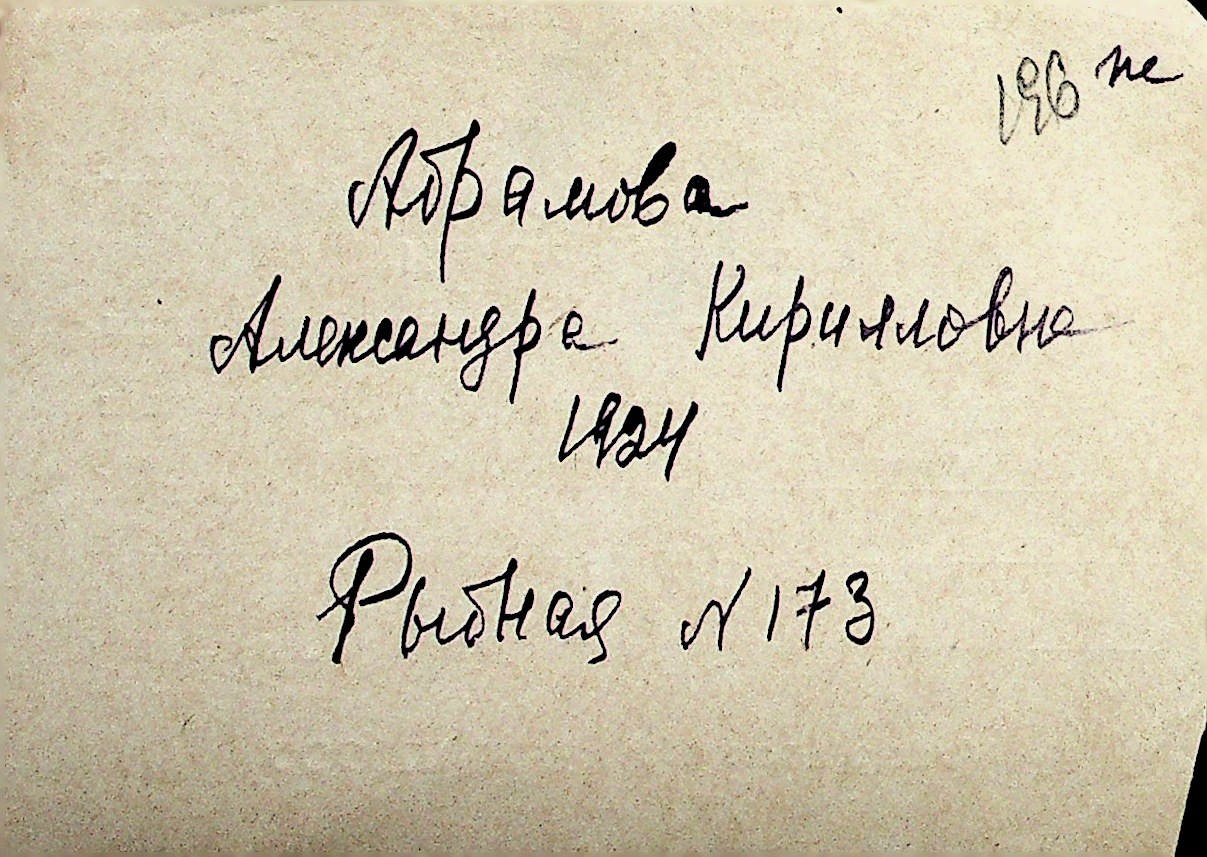 196 не
Абрамова
Александра Кирилловна
1924
Рыбная N 173